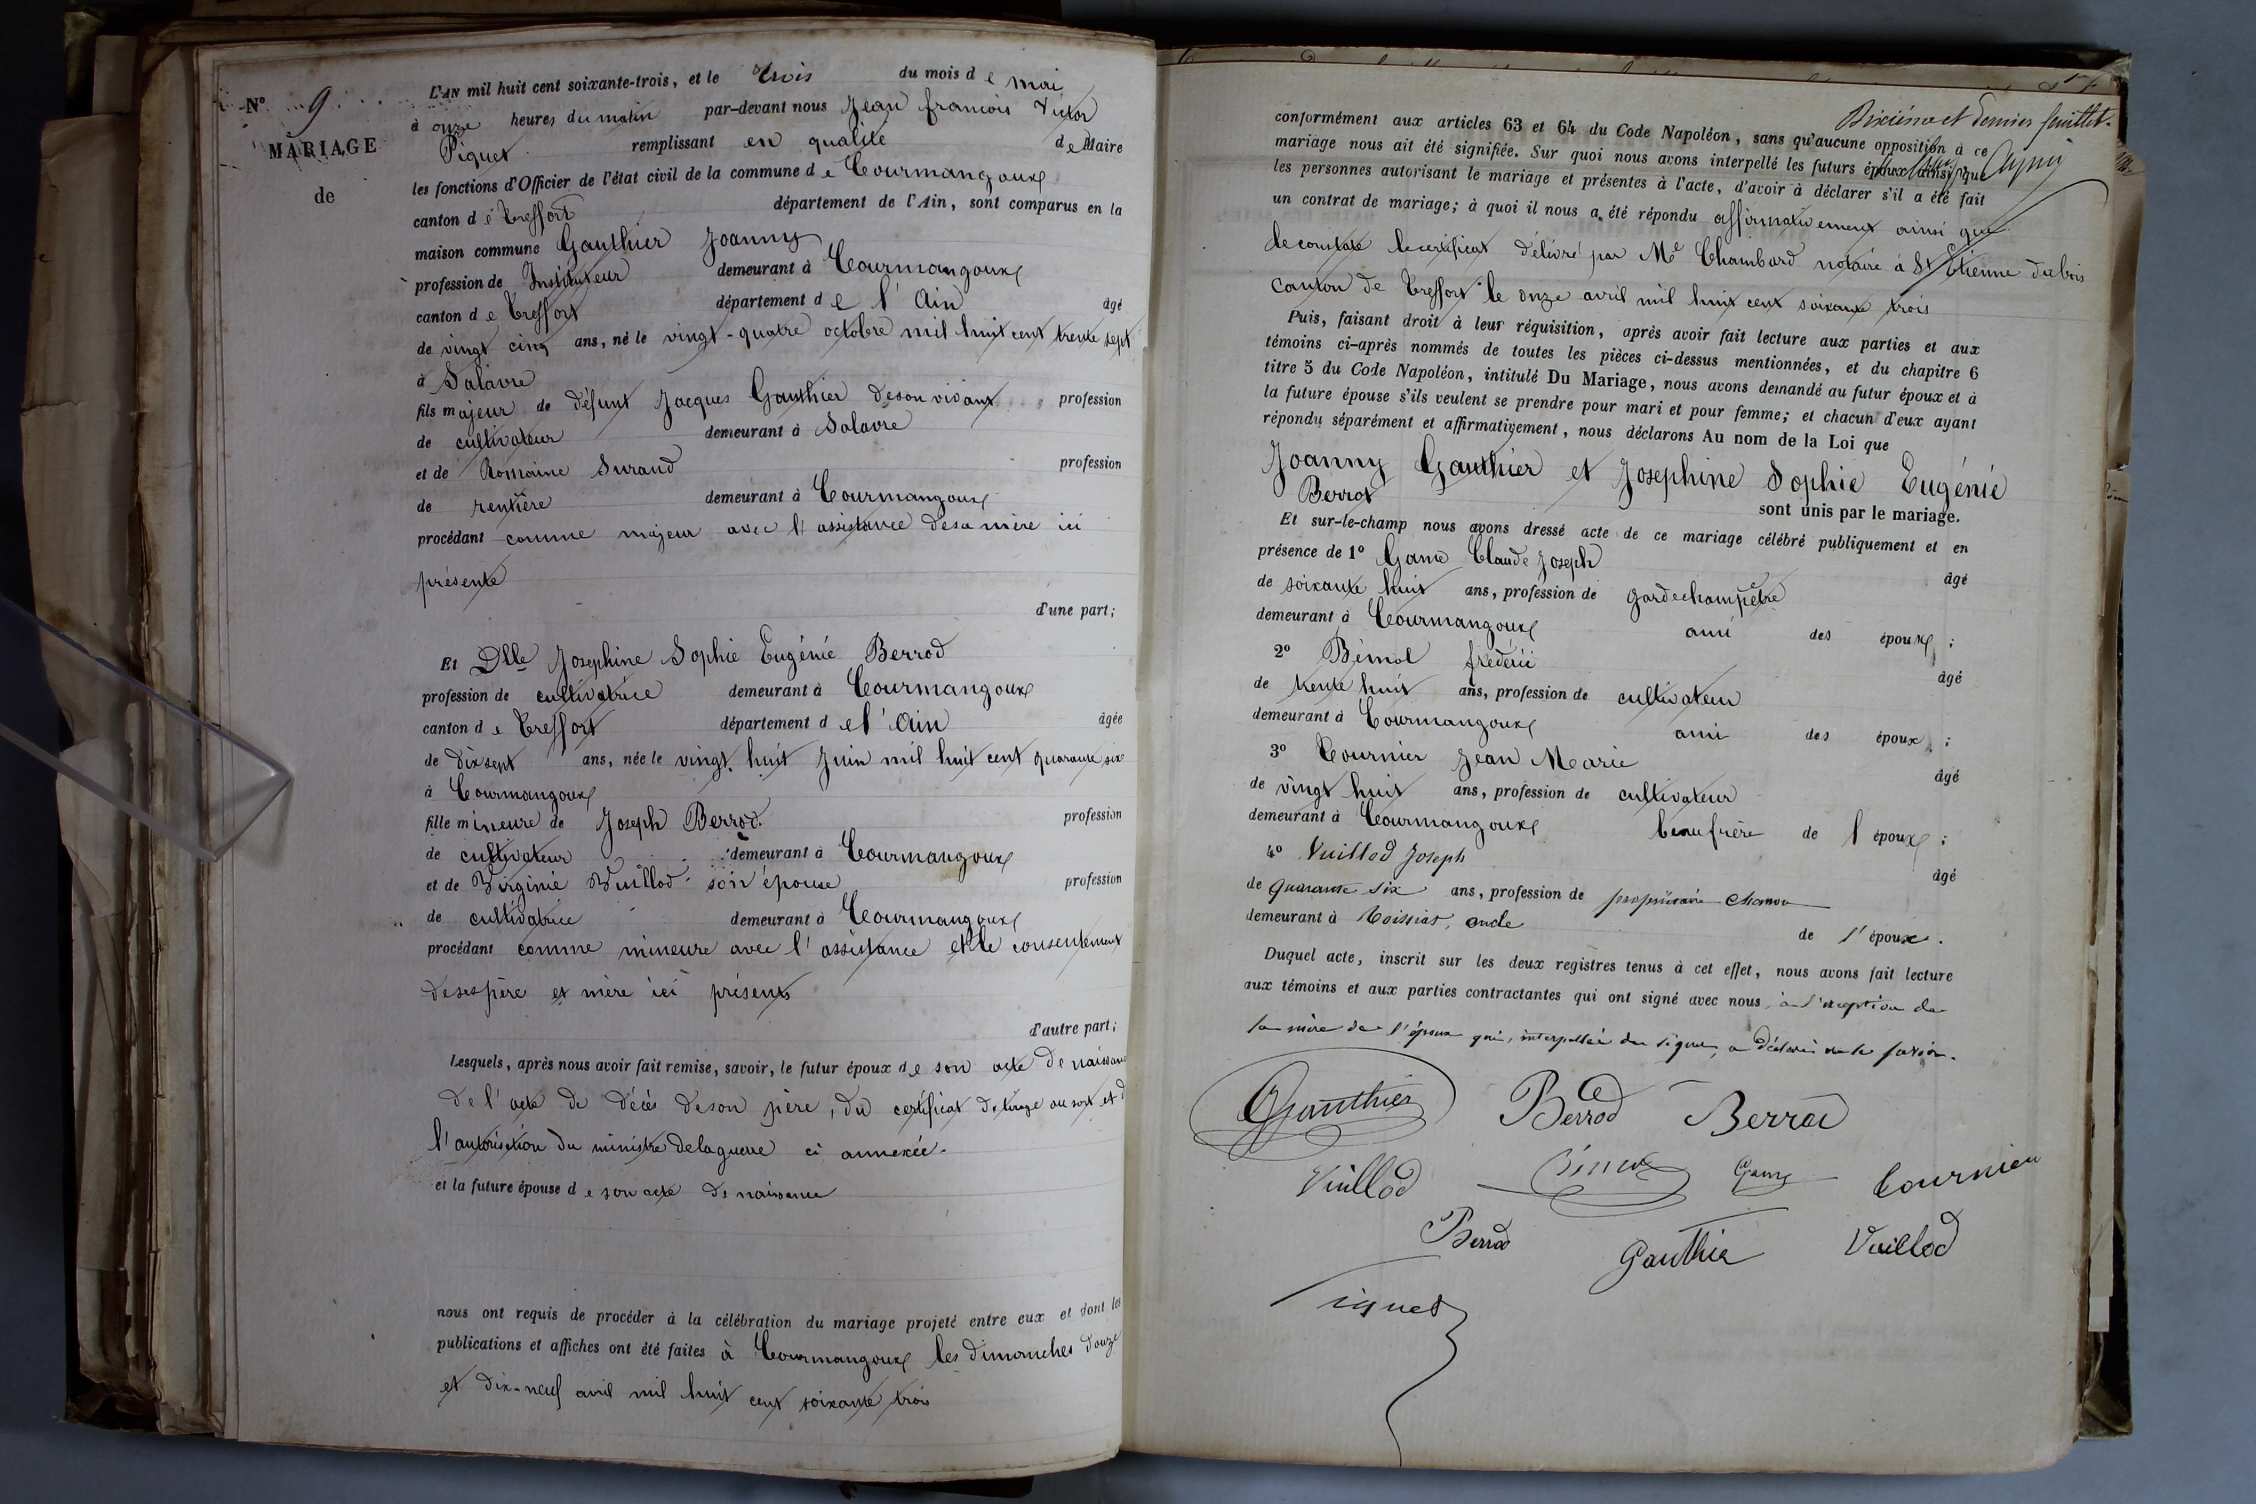 N° 9
MARIAGE
de
L'AN mil huit cent soixante-trois, et le trois du mois de mai
à onze heures du matin par-devant nous Jean francois Victor
Piquet remplissant en qualité de Maire
les fonctions d'Officier de l'état civil de la commune de Courmangoux
canton de Treffort département de l'Ain, sont comparus en la
maison commune Gauthier Joanny
profession de Instituteur demeurant à Courmangoux
canton de Treffort département de l'Ain âgé
de vingt cinq ans, né le vingt-quatre octobre mil huit cent trente sept
à Salavre
fils majeur de défunt Jacques Gauthier de son vivant profession
de cultivateur demeurant à Salavre
et de Romaine Surand profession
de rentière demeurant à Courmangoux
procédant comme majeur avec l'assistance de sa mère ici
présente
d'une part;
Et Dlle Josephine Sophie Eugénie Berrod
profession de cultivatrice demeurant à Courmangoux
canton de Treffort département de l'Ain âgée
de dix sept ans, née le vingt huit Juin mil huit cent quarante six
à Courmangoux
fille mineure de Joseph Berrod profession
de cultivateur demeurant à Courmangoux
et de Virginie Vuillod son épouse profession
de cultivatrice demeurant à Courmangoux
procédant comme mineure avec l'assistance et le consentement
de ses père et mère ici présents
d'autre part;
Lesquels, après nous avoir fait remise, savoir, le futur époux de son acte de naissance
de l'acte de décès de son père, du certificat de tirage au sort et d
l'autorisation du ministre de la guerre ci annexée.
et la future épouse de son acte de naissance
nous ont requis de procéder à la célébration du mariage projeté entre eux et dont les
publications et affiches ont été faites à Courmangoux les dimanches douze
et dix-neuf avril mil huit cent soixante trois
Dixième et dernier feuillet.
conformément aux articles 63 et 64 du Code Napoléon, sans qu'aucune opposition à ce
mariage nous ait été signifiée. Sur quoi nous avons interpellé les futurs époux ainsi que
les personnes autorisant le mariage et présentes à l'acte, d'avoir à déclarer s'il a été fait
un contrat de mariage; à quoi il nous a été répondu affirmativement ainsi que
le constate le certificat délivré par Me Chambard notaire à St Etienne du bois
canton de Treffort le onze avril mil huit cent soixante trois
Puis, faisant droit à leur réquisition, après avoir fait lecture aux parties et aux
témoins ci-après nommés de toutes les pièces ci-dessus mentionnées, et du chapitre 6
titre 5 du Code Napoléon, intitulé Du Mariage, nous avons demandé au futur époux et à
la future épouse s'ils veulent se prendre pour mari et pour femme; et chacun d'eux ayant
répondu séparément et affirmativement, nous déclarons Au nom de la Loi que
Joanny Gauthier et Josephine Sophie Eugénie
Berrot sont unis par le mariage.
Et sur-le-champ nous avons dressé acte de ce mariage célébré publiquement et en
présence de 1° Game Claude Joseph âgé
de soixante huit ans, profession de garde champêtre
demeurant à Courmangoux ami des époux;
2° Bémol frédéric âgé
de trente huit ans, profession de cultivateur
demeurant à Courmangoux ami des époux;
3° Cournier Jean Marie âgé
de vingt huit ans, profession de cultivateur
demeurant à Courmangoux beau frère de l'époux;
4° Vuillod Joseph âgé
de quarante six ans, profession de propriétaire
demeurant à Moissiat, oncle de l'épouse.
Duquel acte, inscrit sur les deux registres tenus à cet effet, nous avons fait lecture
aux témoins et aux parties contractantes qui ont signé avec nous à l'exception de
la mère de l'époux qui, interpellée de signer, a déclaré ne le savoir.
Gauthier Berrod Berrod
Vuillod Game Cournier
Berrod Gauthier Vuillod
Piquet